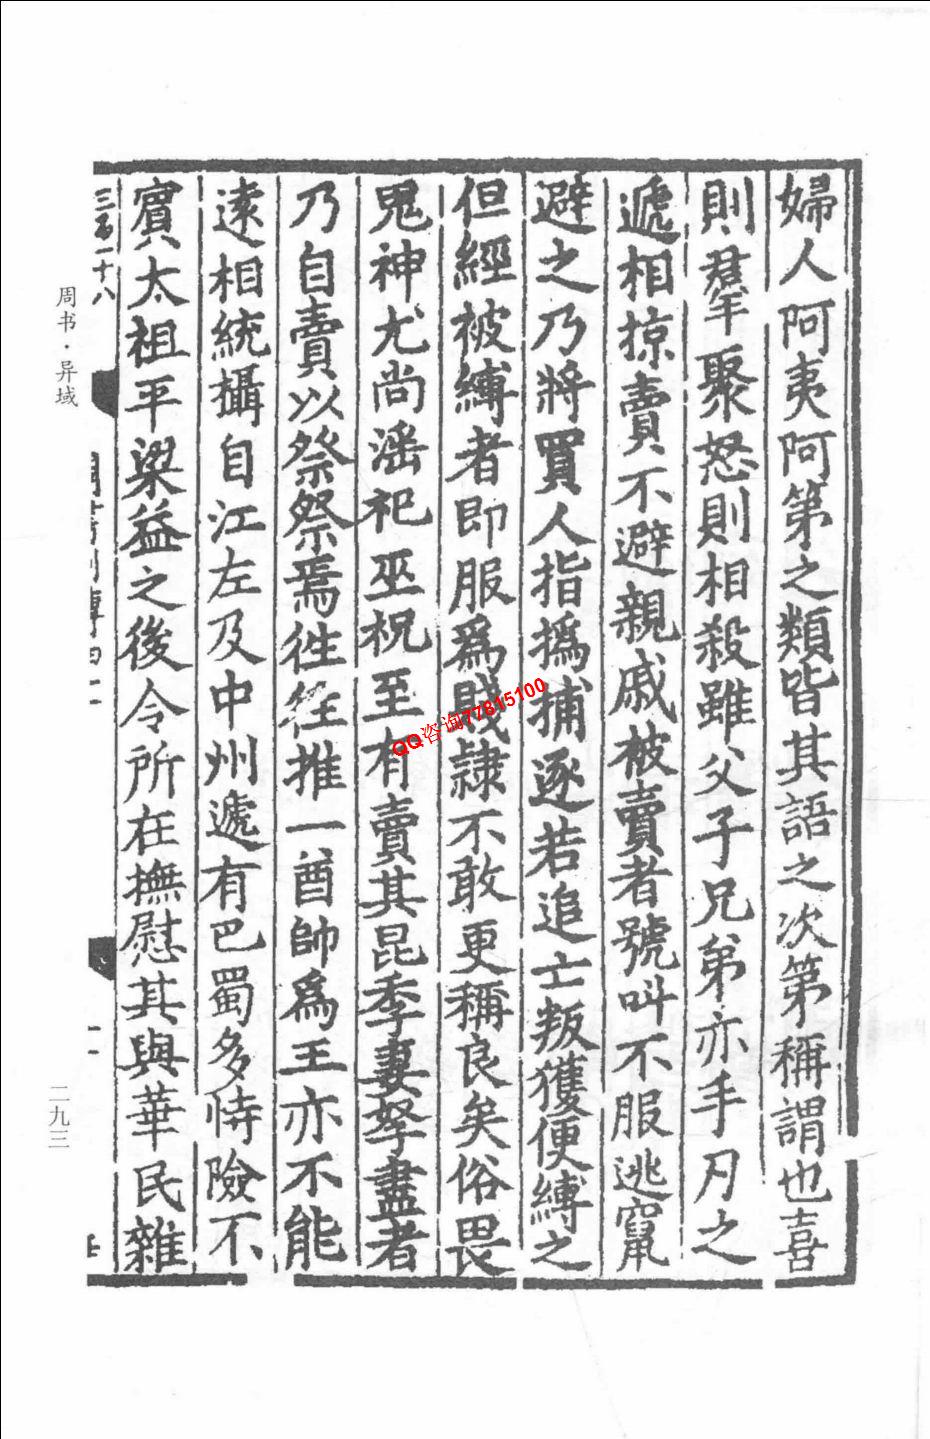 婦人阿夷阿第之類皆其語之次第稱謂也喜
則羣聚怒則相殺雖父子兄弟亦手刃之
遞相掠賣不避親戚被賣者號叫不服逃竄
避之乃將買人指撝捕逐若追亡叛獲便縛之
但經被縛者即服爲賤隷不敢更稱良矣俗畏
鬼神尤尚滛祀巫祝至有賣其昆季妻孥盡者
乃自賣以祭祭焉徃徃推一酋帥爲王亦不能
逺相統攝自江左及中州遞有巴蜀多恃險不
賔太祖平梁益之後令所在撫慰其與華民雜
三百二十八
周书·异域
二九三
QQ咨询77815100